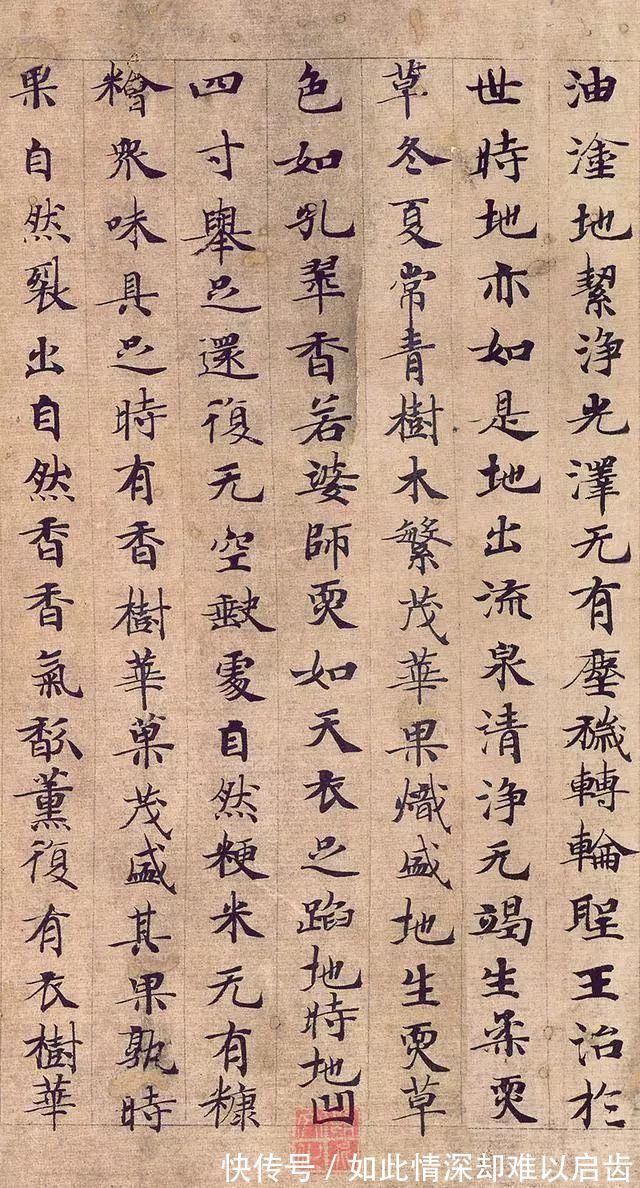 油塗地絜淨光澤无有塵穢轉輪聖王治於
世時地亦如是地出流泉清淨无竭生柔耎
草冬夏常青樹木繁茂華果熾盛地生耎草
色如孔翠香若婆師耎如天衣足蹈地時地凹
四寸舉足還復无空缺處自然粳米无有糠
糩衆味具足時有香樹華菓茂盛其果孰時
果自然裂出自然香香氣馚薰復有衣樹華
快传号 / 如此情深却难以启齿